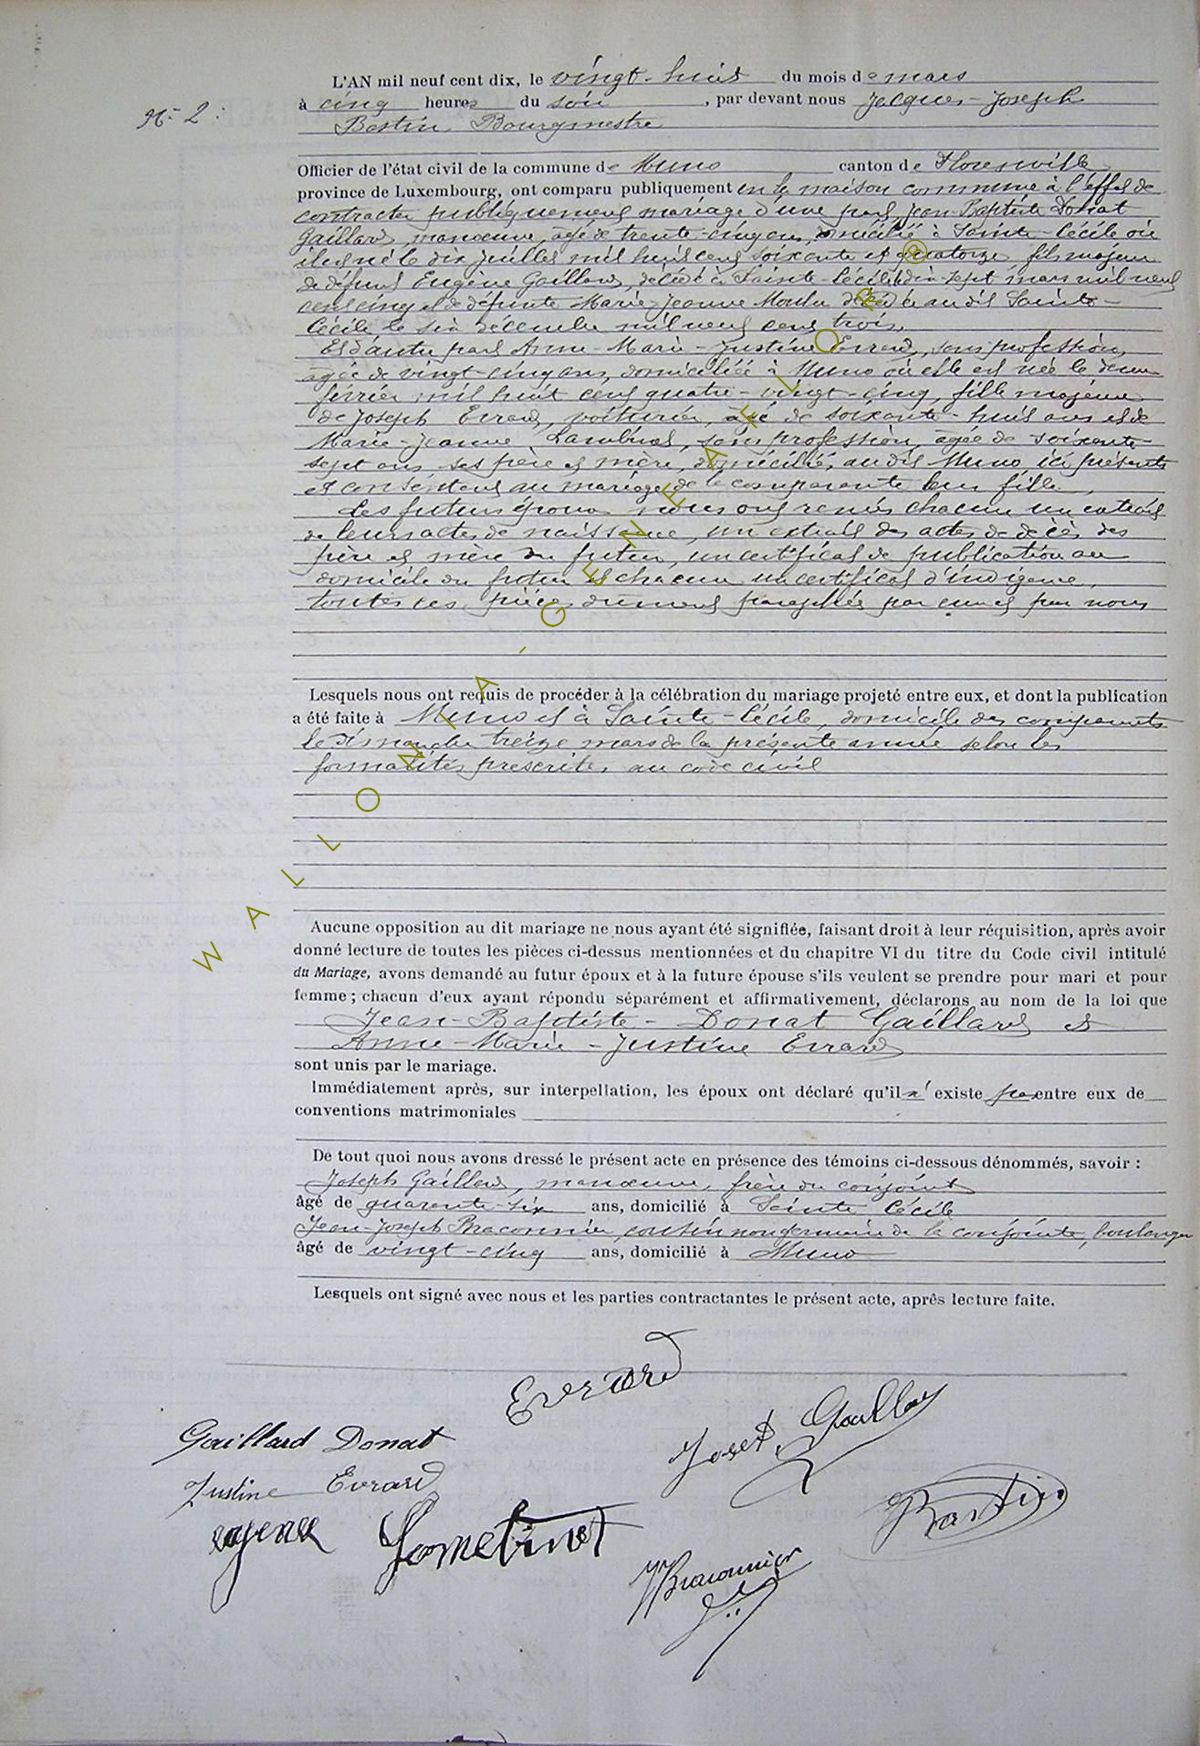 L'AN mil neuf cent dix, le vingt-huit du mois de mars
à cinq heures du soir, par devant nous Jacques-Joseph
N° 2 :
Bastin Bourgmestre
Officier de l'état civil de la commune de Muno canton de Florenville
province de Luxembourg, ont comparu publiquement en la maison commune à l'effet de
contracter publiquement mariage d'une part Jean-Baptiste Donat
Gaillard, manœuvre, âgé de trente-cinq ans, domicilié à Sainte-Cécile où
il est né le dix juillet mil huit cent soixante et quatorze fils majeur
de défunt Eugène Gaillard, décédé à Sainte-Cécile le dix-sept mars mil neuf
cent cinq et de défunte Marie-Jeanne décédée au dit Sainte-
Cécile le six décembre mil neuf cent trois.
Et d'autre part Anne-Marie-Justine Evrard, sans profession,
âgée de vingt-cinq ans, domiciliée à Muno où elle est née le deux
février mil huit cent quatre-vingt-cinq, fille majeure
de Joseph Evrard, voiturier, âgé de soixante-huit ans et de
Marie-Jeanne, sans profession, âgée de soixante-
sept ans ses père et mère, domiciliés au dit Muno, ici présents
et consentant au mariage de la comparante leur fille.
Les futurs époux nous ont remis chacun un extrait
de leurs actes de naissance, un extrait des actes de décès des
père et mère du futur, un certificat de publication au
domicile du futur et chacun un certificat d'indigence,
toutes ces pièces dûment paraphées par eux et par nous
Lesquels nous ont requis de procéder à la célébration du mariage projeté entre eux, et dont la publication
a été faite à Muno et à Sainte-Cécile, domicile des comparants
le dimanche treize mars de la présente année selon les
formalités prescrites au code civil
Aucune opposition au dit mariage ne nous ayant été signifiée, faisant droit à leur réquisition, après avoir
donné lecture de toutes les pièces ci-dessus mentionnées et du chapitre VI du titre du Code civil intitulé
du Mariage, avons demandé au futur époux et à la future épouse s'ils veulent se prendre pour mari et pour
femme ; chacun d'eux ayant répondu séparément et affirmativement, déclarons au nom de la loi que
Jean-Baptiste-Donat Gaillard et
Anne-Marie-Justine Evrard
sont unis par le mariage.
Immédiatement après, sur interpellation, les époux ont déclaré qu'il n'existe pas entre eux de
conventions matrimoniales
De tout quoi nous avons dressé le présent acte en présence des témoins ci-dessous dénommés, savoir :
Joseph Gaillard, manœuvre, frère du conjoint
âgé de quarante-six ans, domicilié à Sainte Cécile
Jean-Joseph Braconnier, cousin non germain de la conjointe, boulanger
âgé de vingt-cinq ans, domicilié à Muno
Lesquels ont signé avec nous et les parties contractantes le présent acte, après lecture faite.
Evrard
Gaillard Donat
Joseph Gaillard
Justine Evrard
Bastin
JJ Braconnier
WALLONIA-GENEAFLOR®